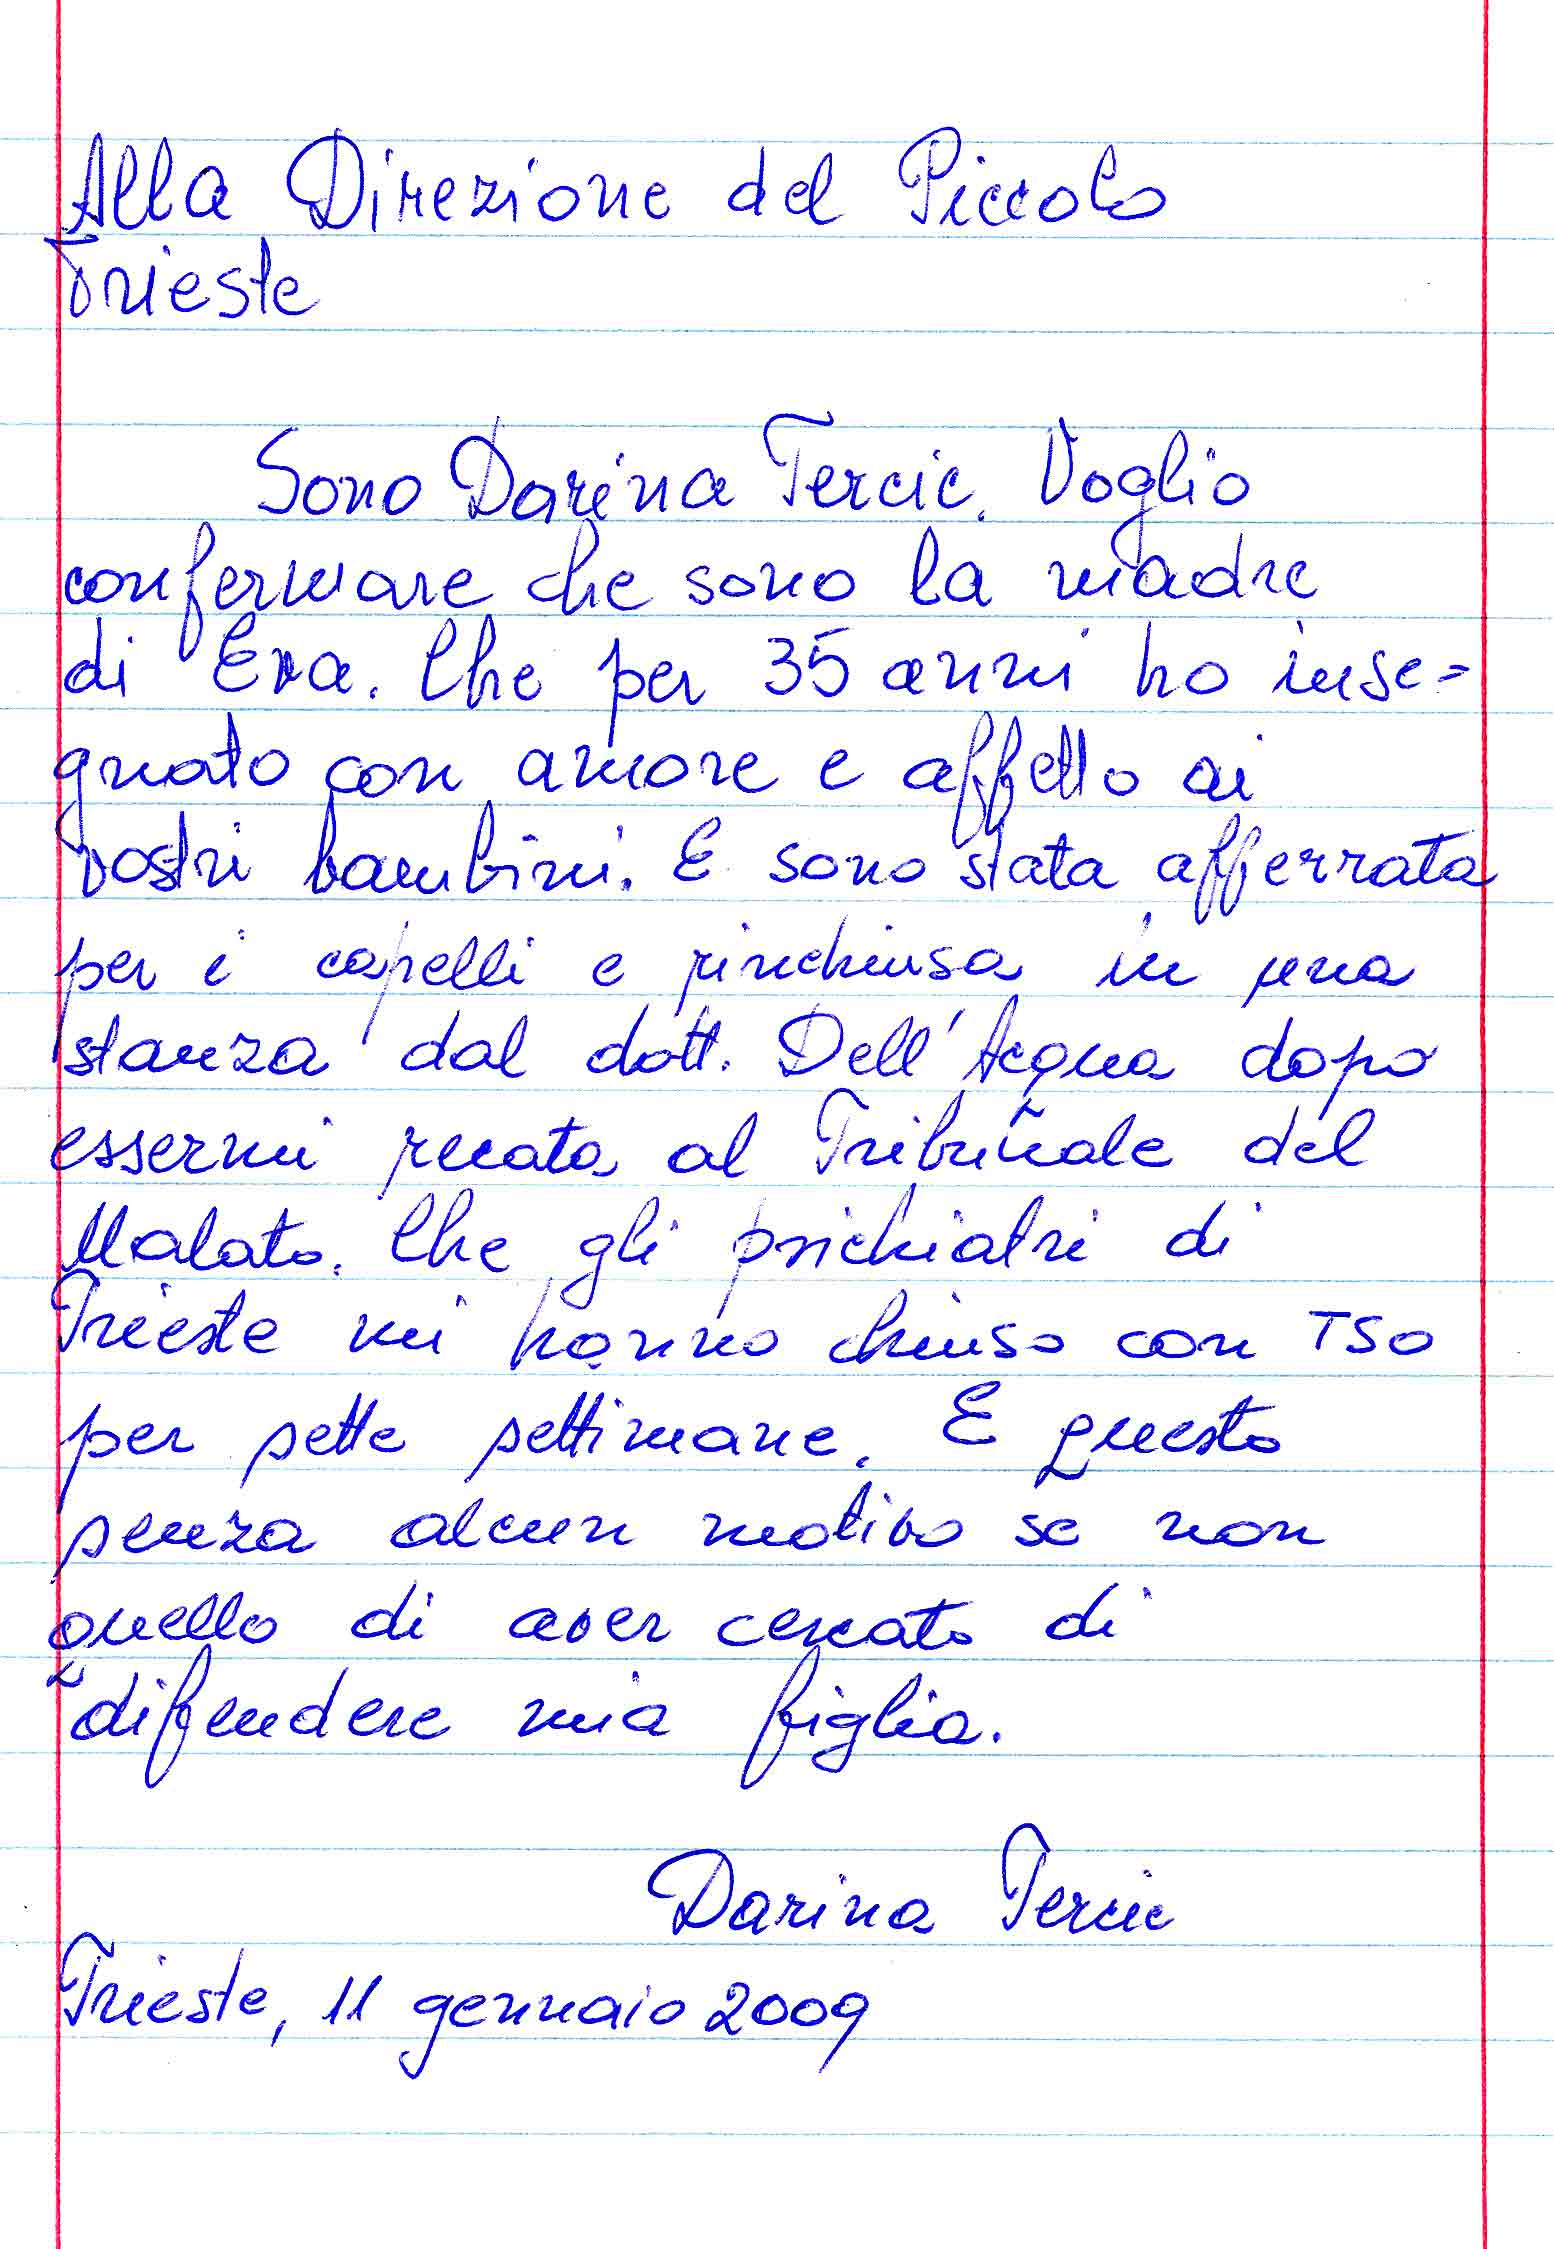 Alla Direzione del Piccolo
Trieste
Sono Darina Tercic. Voglio
confermare che sono la madre
di Eva. Che per 35 anni ho inse=
gnato con amore e affetto ai
vostri bambini. E sono stata afferrata
per i capelli e rinchiusa in una
stanza dal dott. Dell'Acqua dopo
essermi recata al Tribunale del
Malato. Che gli psichiatri di
Trieste mi hanno chiuso con TSO
per sette settimane. E questo
senza alcun motivo se non
quello di aver cercato di
difendere mia figlia.
Darina Tercic
Trieste, 11 gennaio 2009